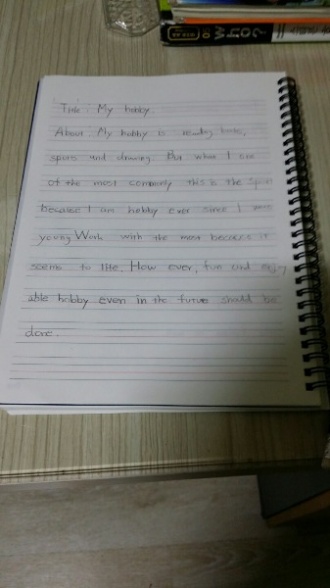 Title : My hobby.
About My hobby is reading books,
sports and drawing. But when I one
of the most commonly this is the sport
because I am hobby ever since I was
young Work with the most because it
seems to life. How ever, fun and enjoy
able hobby even in the future should be
done.